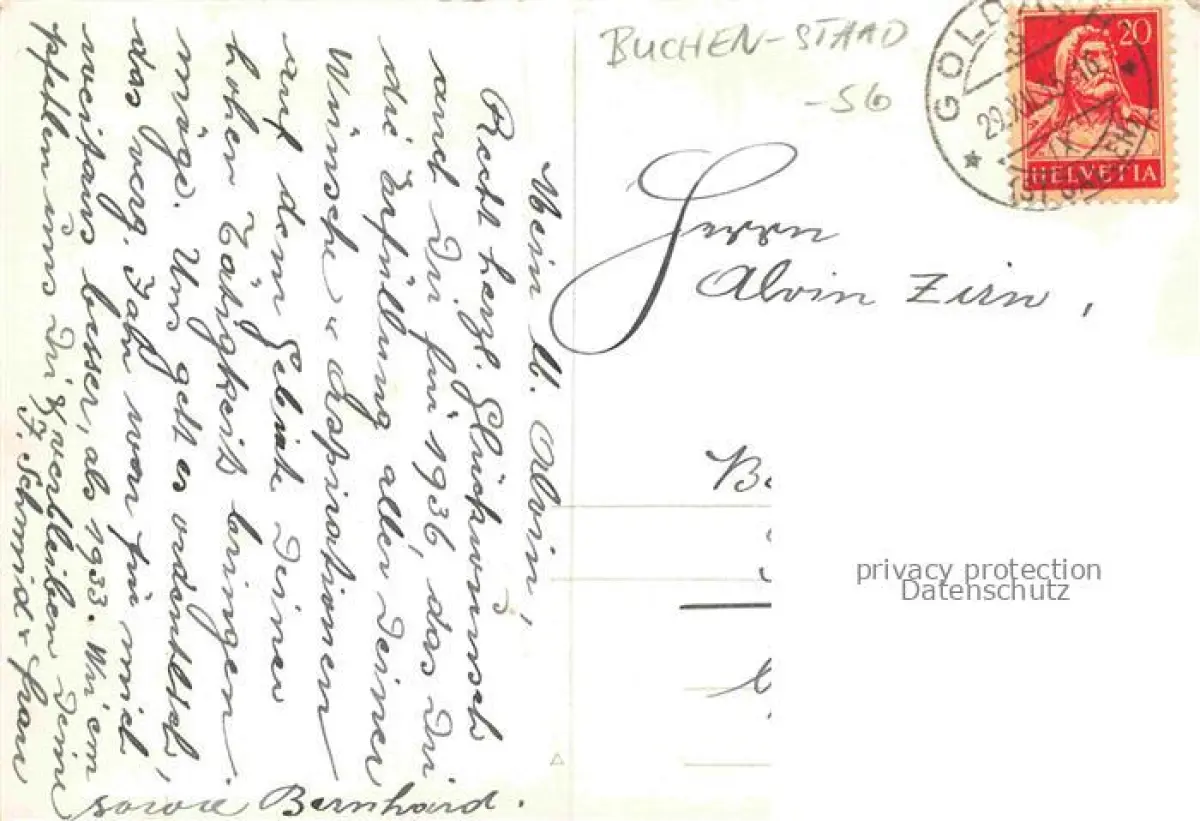 BUCHEN-STAAD
-56
GOLDACH
29.XII.35.-18
(ST. GALLEN)
20
HELVETIA
Herrn
Alvin Zirn,
Be
privacy protection
Datenschutz
Mein lb. Alvin,
Recht herzl. Glückwunsch
auch Dir für 1936, das Dir
die Erfüllung aller Deiner
Wünsche & Aspirationen
auf dem Gebiete Deiner
hohen Tätigkeit bringen
möge. Uns geht es ordentlich,
das verg. Jahr war für mich
weitaus besser, als 1933. Wir em
pfehlen uns Dir & verbleiben Deine
F. Schmid & Frau
sowie Bernhard.